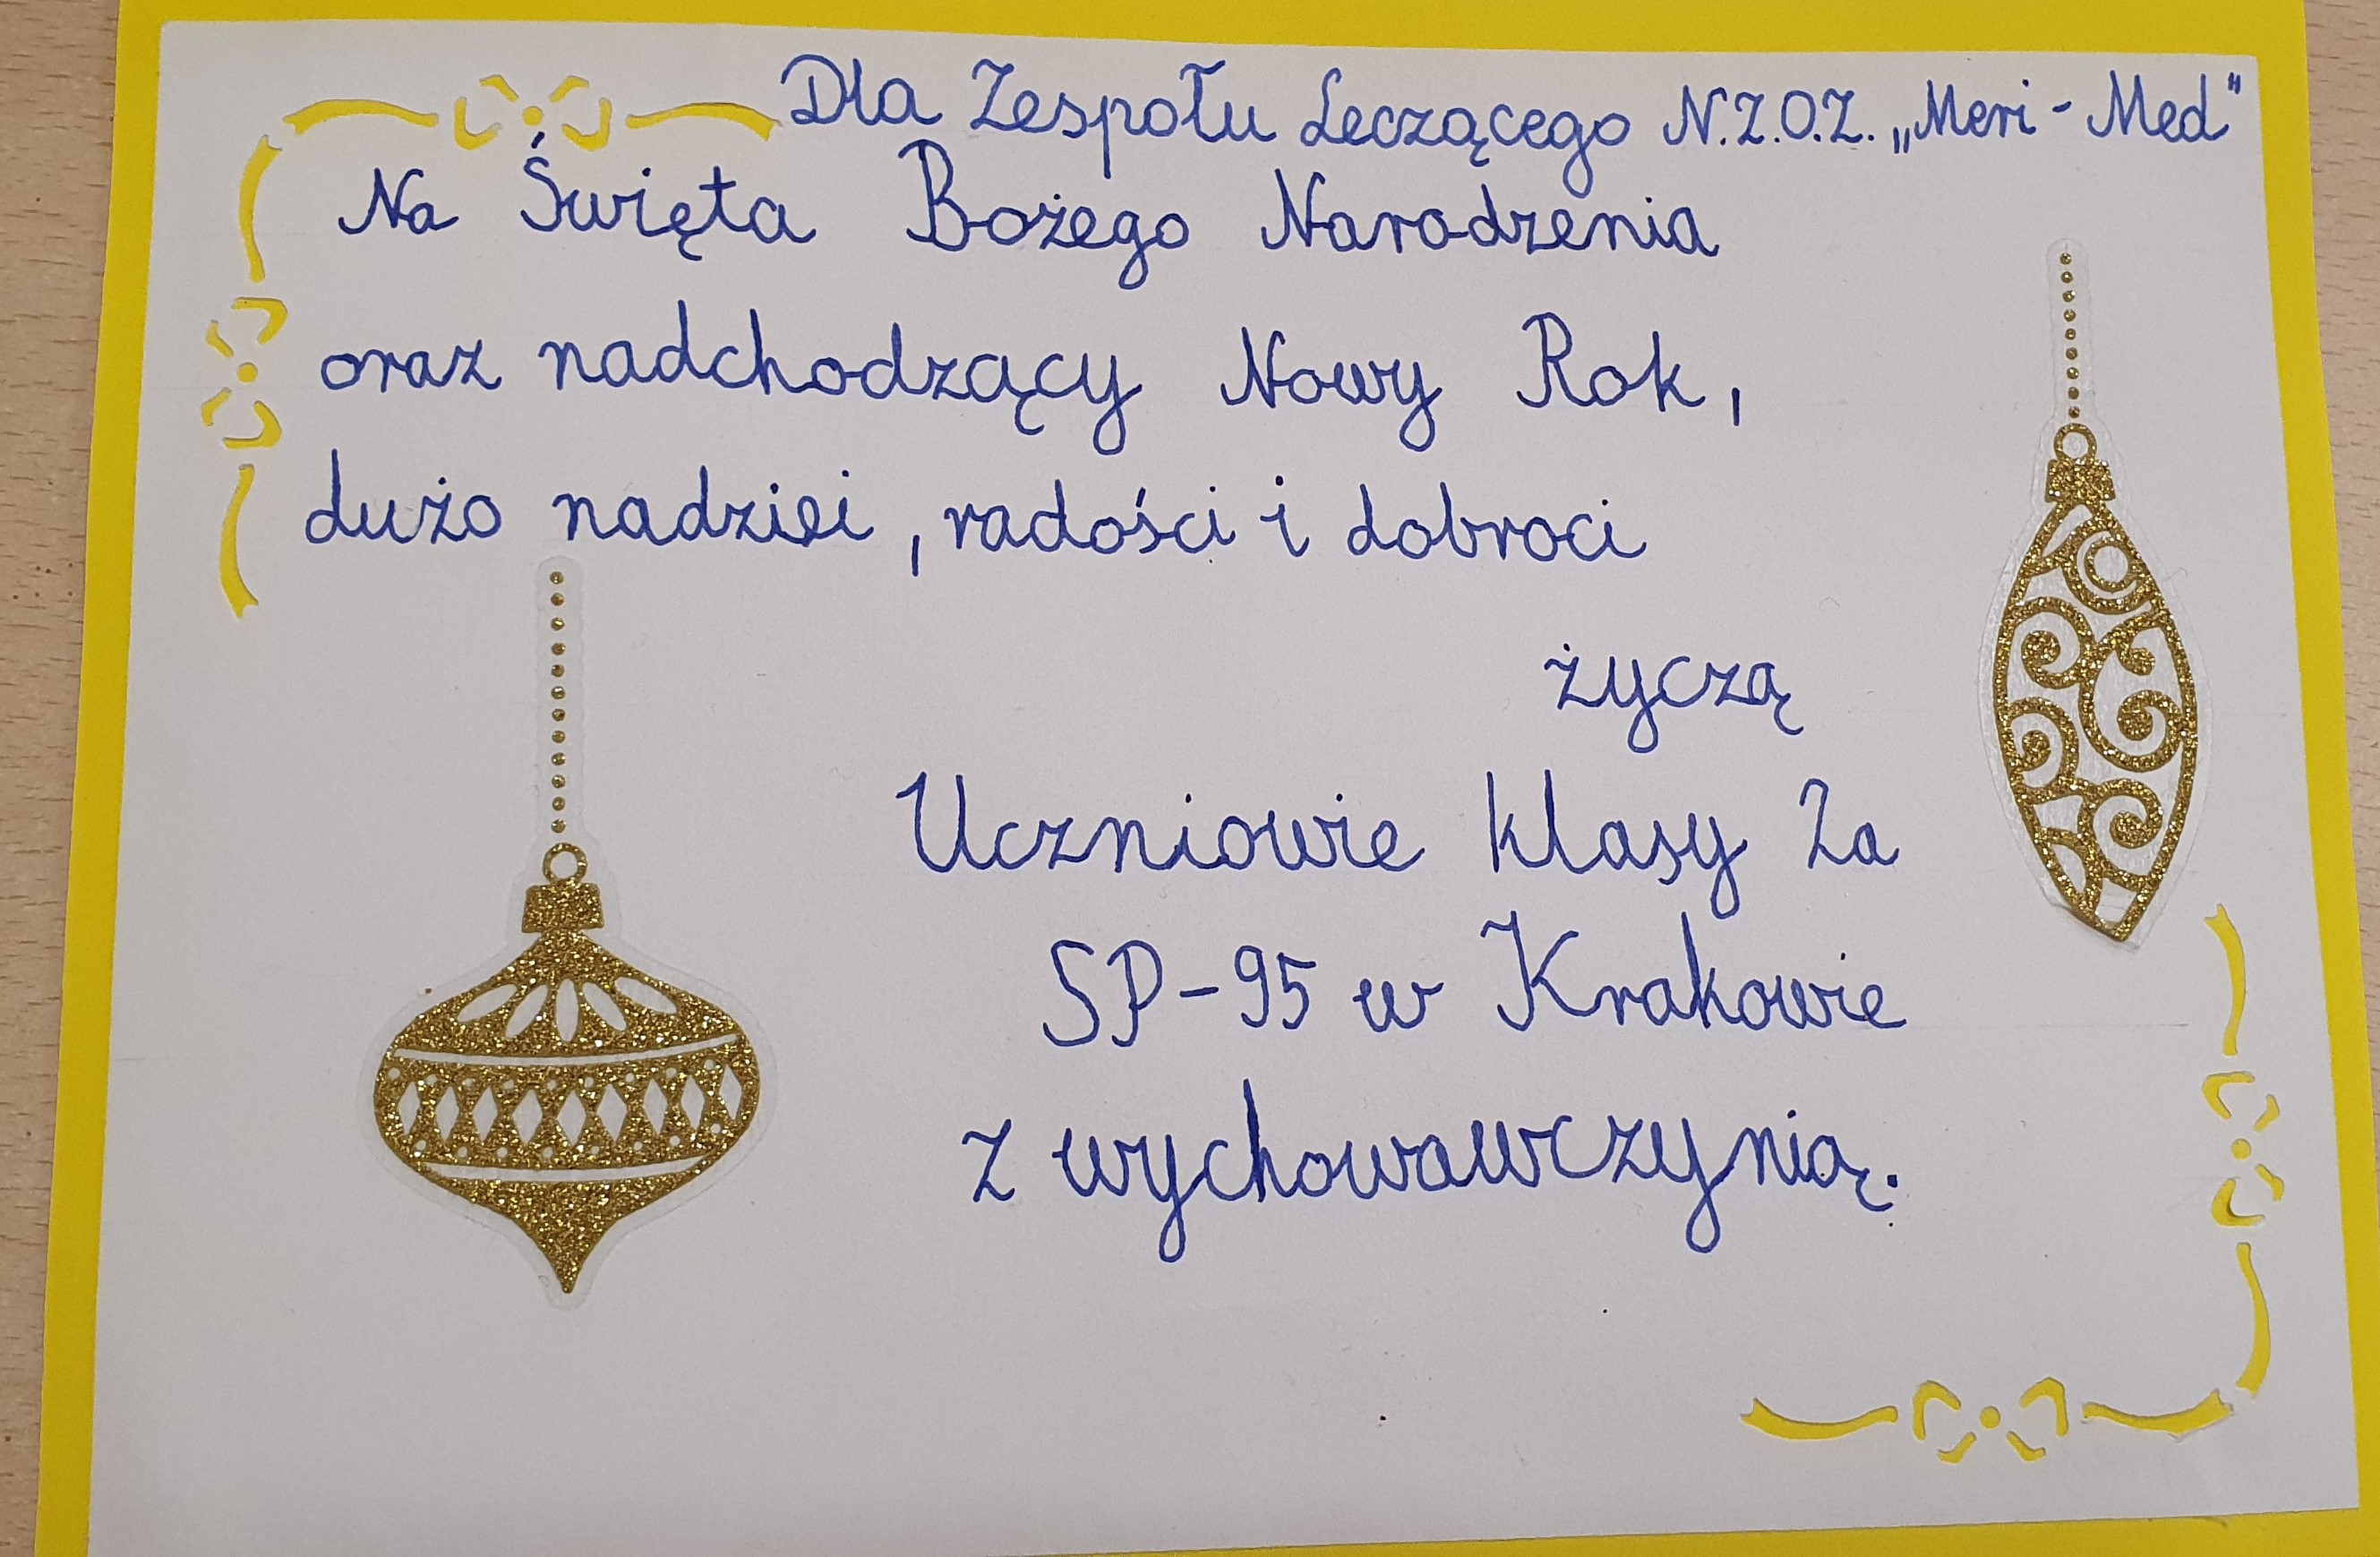 Dla Zespołu Leczącego N.Z.O.Z. „Meri-Med"
Na Święta Bożego Narodzenia
oraz nadchodzący Nowy Rok,
dużo nadziei, radości i dobroci
życzą
Uczniowie klasy 2a
SP-95 w Krakowie
z wychowawczynią.